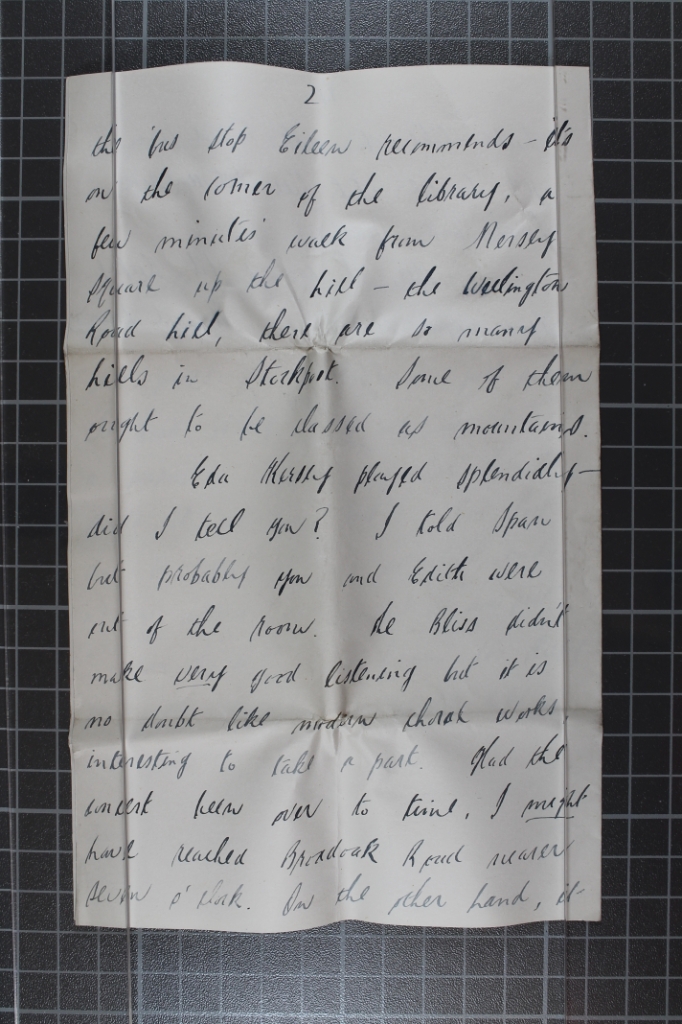 2
the bus stop Eileen recommends – it's
on the corner of the library, a
few minutes' walk from Mersey
Square up the hill – the Wellington
Road hill, there are so many
hills in Stockport. Some of them
ought to be classed as mountains.
Eda Kersey played splendidly –
did I tell you? I told Span
but probably you and Edith were
out of the room. The Bliss didn't
make very good listening but it is
no doubt like modern choral works,
interesting to take a part. Had the
concert been over to time, I might
have reached Broadoak Road nearer
seven o'clock. On the other hand, it